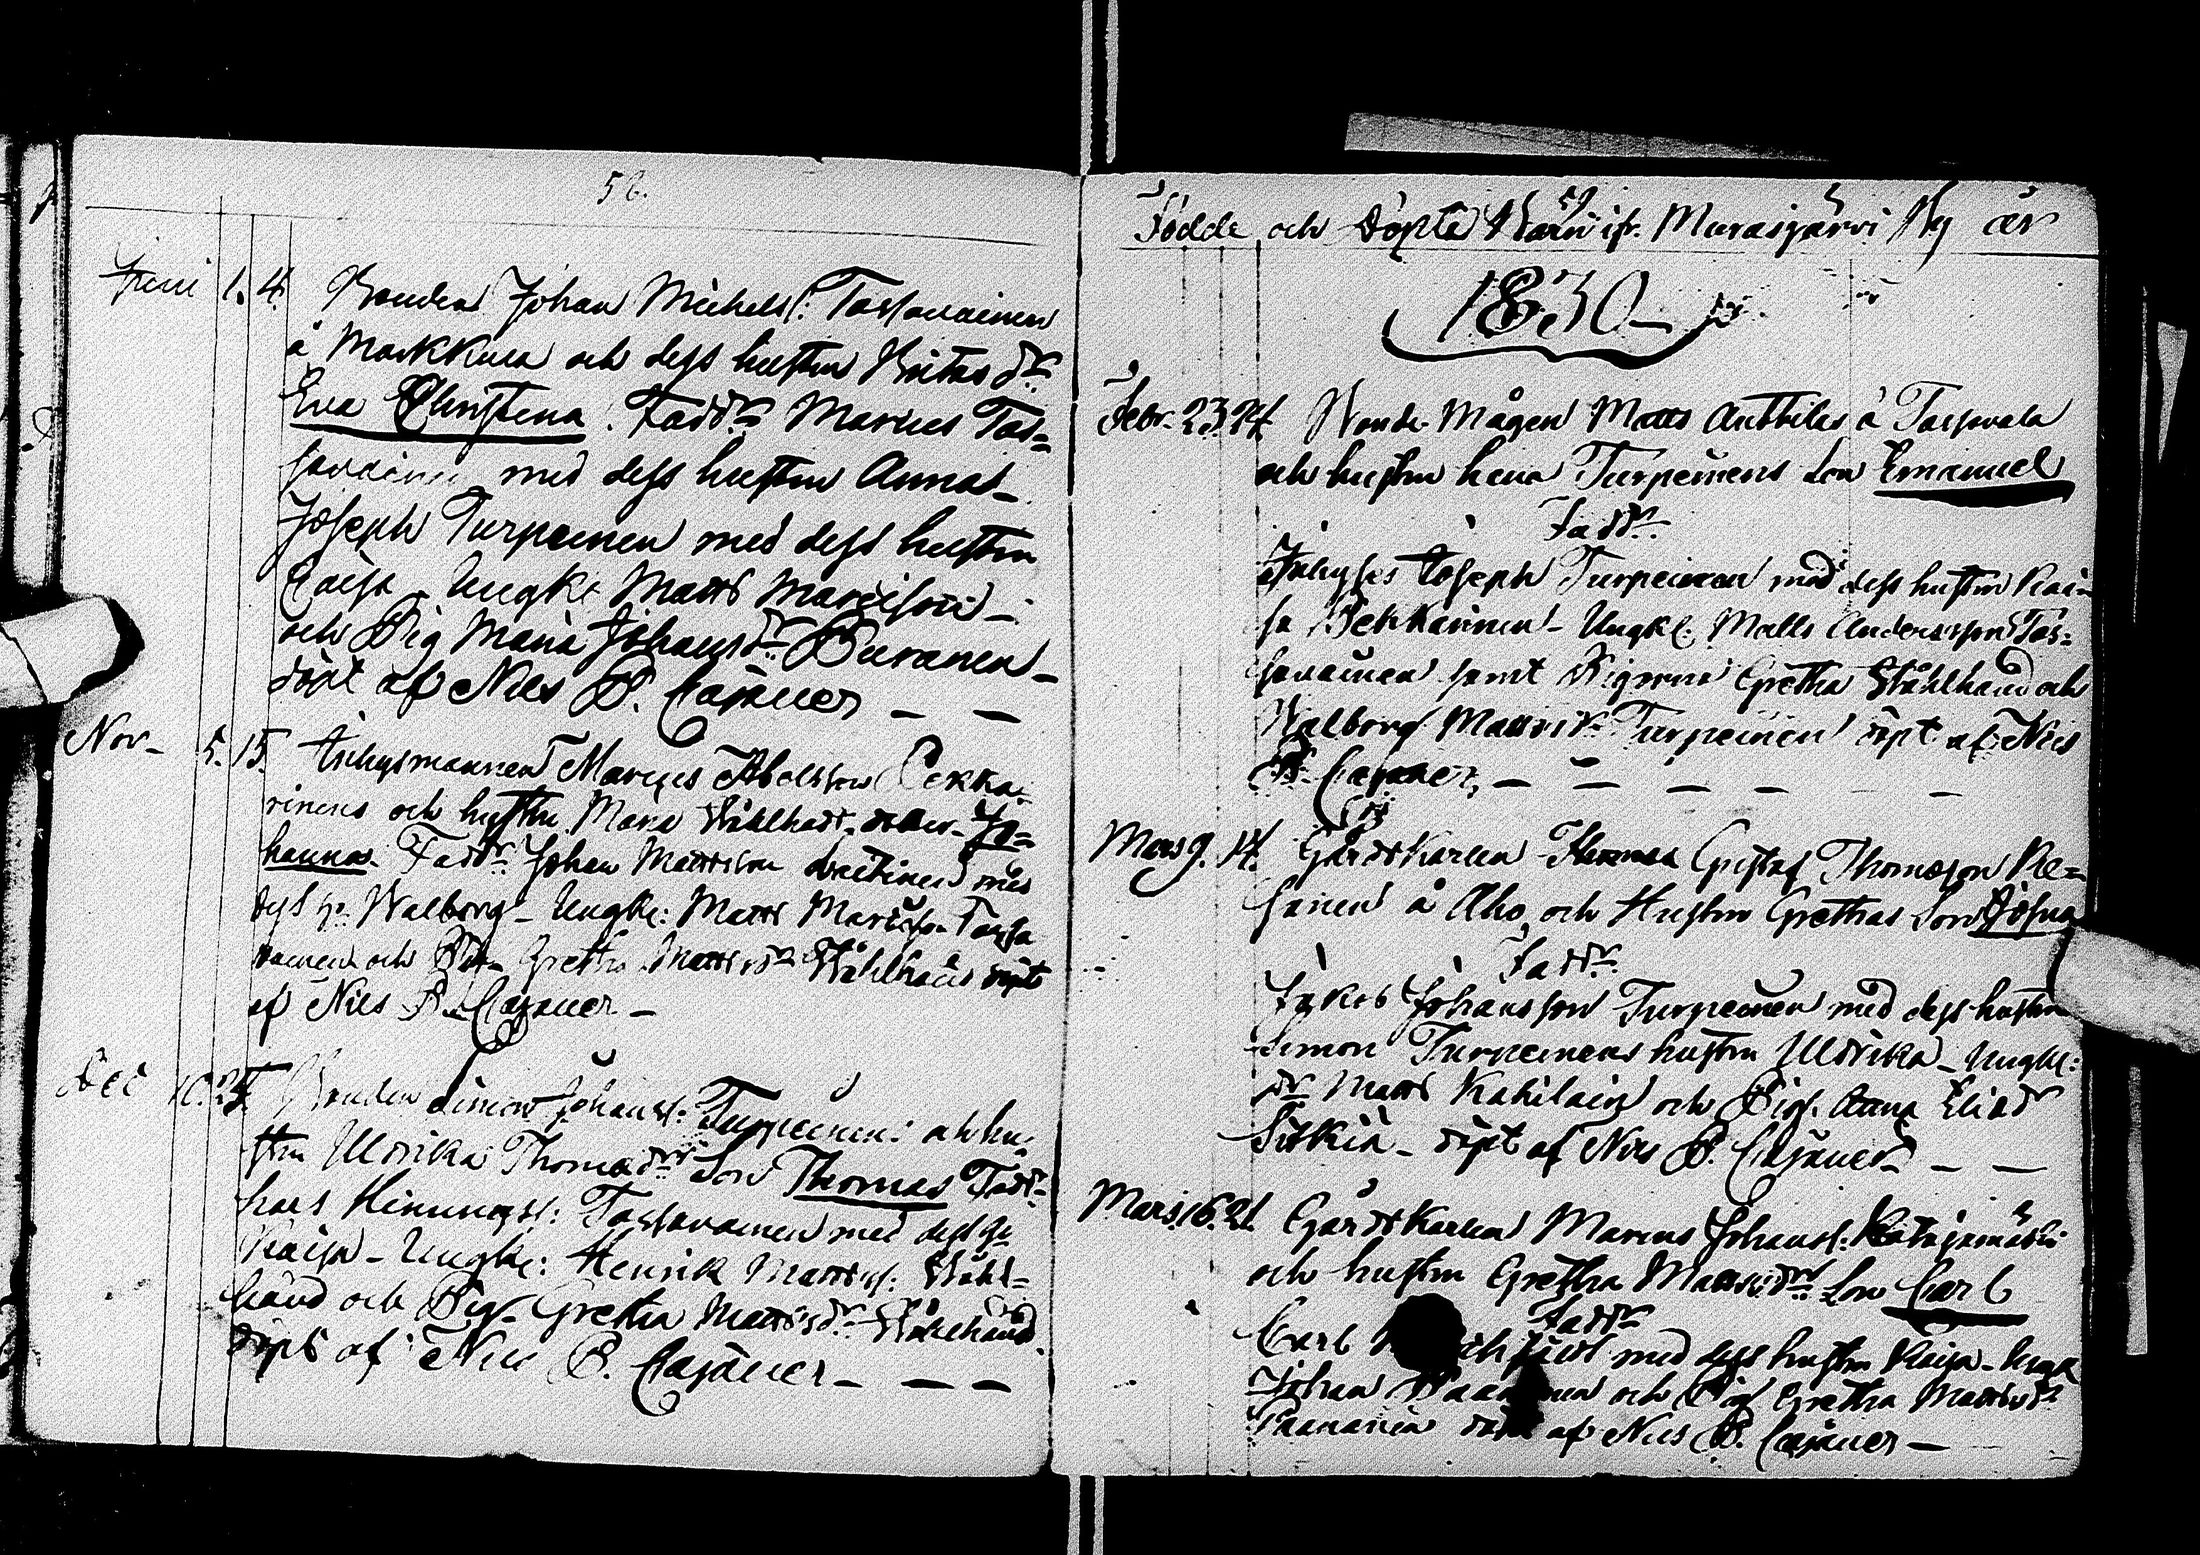 56.
Juni 1. 4. Bonden Johan Michelss: Tassavainen
å Markkula och dess hustru Britas dr
Eva Christina. Faddr Marcus Tas=
savainen med dess hustru Annas
Joseph Turpeinen med dess hustru
Caisa Ungk: Matts Marcisson
och Pig Maria Johansdr Puranen
döpt af Nils B. Cajaner
Nov. 5. 15. Inhysmannen Marcus Abelsson Pekka=
rinens och hustru Maria Stålhand. dotter Jo=
hanna. Faddr Johan Mattsson med
dess h. Walborg Ungk: Matts
och Pig Gretha Mattsdr Stålhand döpt
af Nils B. Cajaner
Dec Bonden Simon Johanss: Turpeinens och hu=
stru Ulrika Thomædr Son Thomas Fadd
Tassavainen med dess h
Kaisa Ungk: Henrik Mattss: Stål=
hand och Pig. Gretha Mattsdr Stålhand
döpt af Nils B. Cajaner
Födde och Döpte Barn ifr. Murasjärvi Ny år
1830
Febr. 23. 24. Bonde Mågen Matts Anttilas å
och hustru Turpeinens Son Emanuel
Faddr
Inhyses Joseph Turpeinen med dess hustru Kai=
sa Pekkarinen Ungk: Matts Andersson Tas=
savainen samt Pigorna Gretha Stålhand och
Walborg Mattsdr Turpeinen döpt af Nils
B. Cajaner
Mars 9. 14. Gårdskarlen Gustaf Thomæson
å Aho och Hustru Grethas Son Josua
Faddr
Jakob Johansson Turpeinen med dess hustru
Simon Turpeinens hustru Ulrika Ungk:
Matts och Pig. Anna
döpt af Nils B. Cajaner
Mars 16. 21. Gårdskarlen Marcus Johanss:
och hustru Gretha Mattsdr Son Carl
Faddr
Carl med dess hustru Kaisa Ungk
Johan och Pig Gretha Mattsdr
Paananen döpt af Nils B. Cajaner